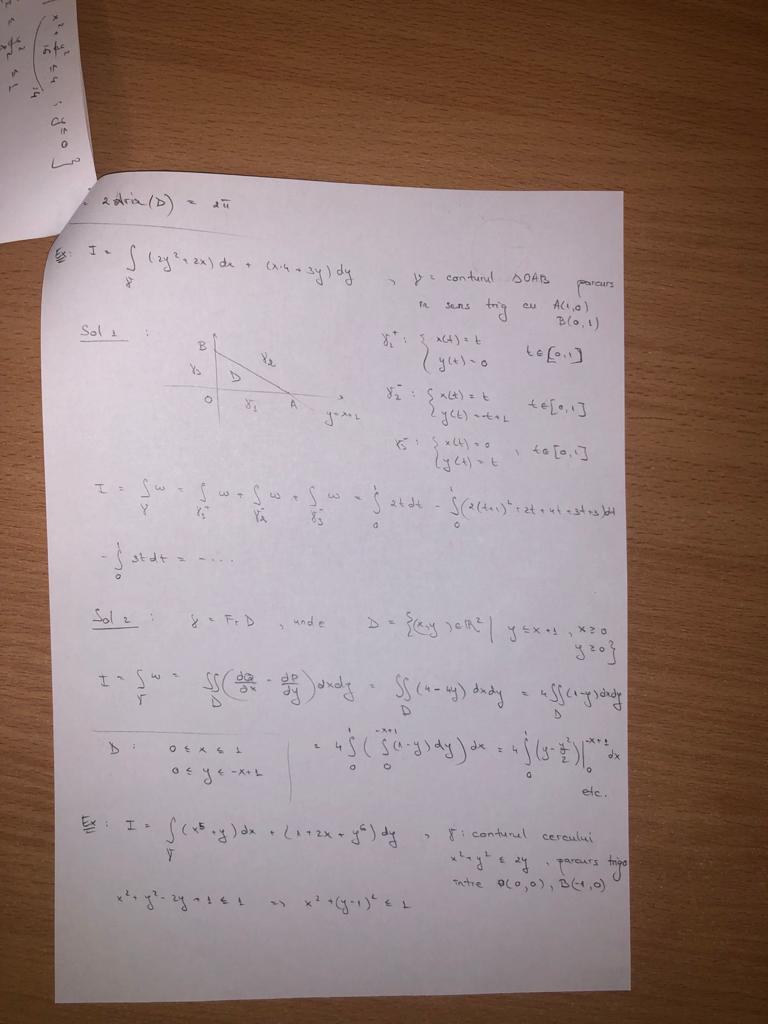 x² + y²/16 ≤ 4 ; y ≤ 0 }
/4
y²/2 ≤ 1
= 2 Aria (D) = 2π
Ex: I = ∫_γ (2y² + 2x) dx + (x·4 + 3y) dy , γ = conturul ΔOAB parcurs
în sens trig cu A(1,0)
B(0,1)
Sol 1 :
B γ₂
γ₃ D
O γ₁ A
y = x+1
γ₁⁺ : { x(t) = t
y(t) = 0 t ∈ [0,1]
γ₂⁻ : { x(t) = t
y(t) = -t+1 t ∈ [0,1]
γ₃⁻ : { x(t) = 0
y(t) = t , t ∈ [0,1]
I = ∫_γ ω = ∫_γ₁⁻ ω + ∫_γ₂⁻ ω + ∫_γ₃⁻ ω = ∫₀¹ 2t dt - ∫₀¹ (2(t+1)² + 2t + 4t + 3t + 3) dt
- ∫₀¹ 3t dt = - ...
Sol 2 : γ = Fr D , unde D = {(x,y) ∈ ℝ² | y ≤ x+1 , x ≥ 0
y ≥ 0}
I = ∫_γ ω = ∬_D (dQ/dx - dP/dy) dx dy = ∬_D (4 - 4y) dx dy = 4 ∬_D (1-y) dx dy
D : 0 ≤ x ≤ 1
0 ≤ y ≤ -x+1
= 4 ∫₀¹ ( ∫₀^(-x+1) (1-y) dy ) dx = 4 ∫₀¹ (y - y²/2) |₀^(-x+1) dx
etc.
Ex : I = ∫_γ (x⁵ + y) dx + (1 + 2x + y⁶) dy , γ : conturul cercului
x² + y² ≤ 2y , parcurs trigo
între O(0,0), B(-1,0)
x² + y² - 2y + 1 ≤ 1 => x² + (y-1)² ≤ 1